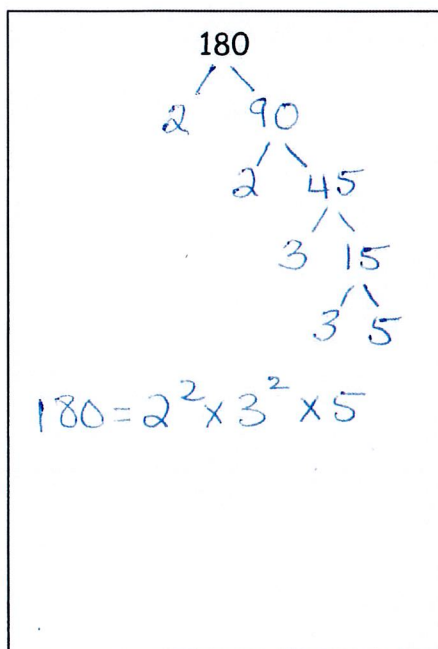 180
2 90
2 45
3 15
3 5
180 = 2² × 3² × 5